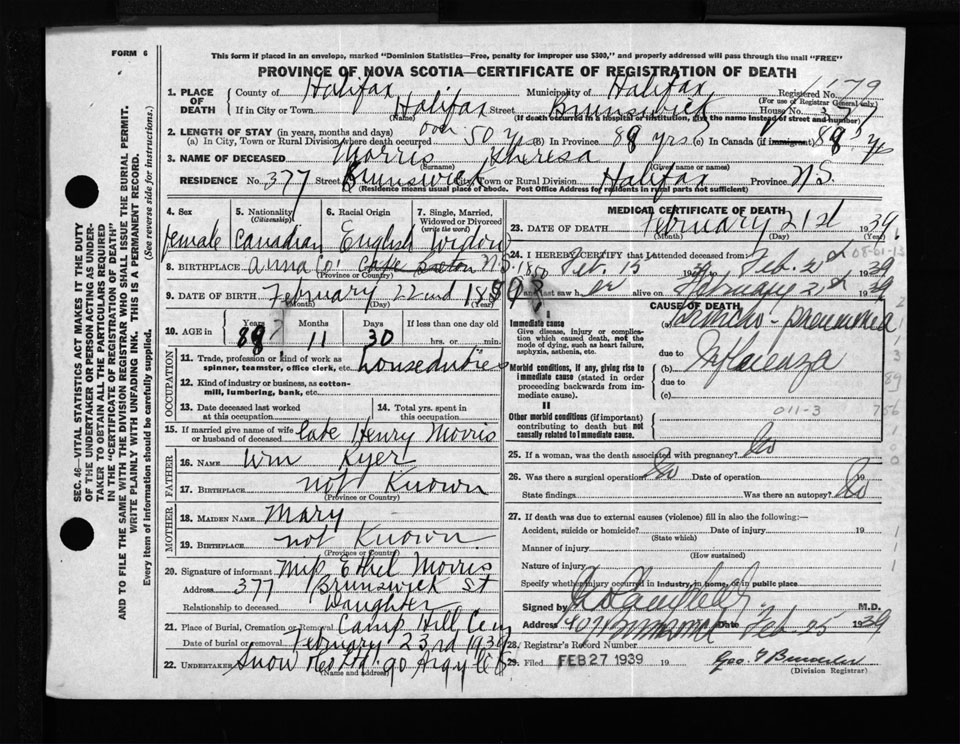 FORM 6
This form if placed in an envelope, marked "Dominion Statistics—Free, penalty for improper use $300," and properly addressed will pass through the mail "FREE"
PROVINCE OF NOVA SCOTIA—CERTIFICATE OF REGISTRATION OF DEATH
1. PLACE OF DEATH County of Halifax Municipality of Halifax Registered No. 79
(For use of Registrar General only)
If in City or Town Halifax Street Brunswick House No. 377
(Name) (If death occurred in a hospital or institution, give the name instead of street and number)
2. LENGTH OF STAY (in years, months and days)
(a) In City, Town or Rural Division where death occurred over 50 yrs (B) In Province 88 yrs. (c) In Canada (if immigrant) 88 yrs
3. NAME OF DECEASED Morris Theresa
(Surname) (Given name or names)
RESIDENCE No. 377 Street Brunswick City, Town or Rural Division Halifax Province N.S.
(Residence means usual place of abode. Post Office Address for residents in rural parts not sufficient)
4. Sex female
5. Nationality (Citizenship) Canadian
6. Racial Origin English
7. Single, Married, Widowed or Divorced (write the word) Widow
8. BIRTHPLACE Anna Co. Cape Breton N.S.
(Province or Country)
9. DATE OF BIRTH February 22nd 1850
(Month) (Day) (Year)
10. AGE in Years 88 Months 11 Days 30 If less than one day old hrs. or min.
OCCUPATION
11. Trade, profession or kind of work as spinner, teamster, office clerk, etc. houseduties
12. Kind of industry or business, as cotton-mill, lumbering, bank, etc.
13. Date deceased last worked at this occupation
14. Total yrs. spent in this occupation
15. If married give name of wife or husband of deceased late Henry Morris
FATHER
16. NAME Wm Kyer
17. BIRTHPLACE not Known
(Province or Country)
MOTHER
18. MAIDEN NAME Mary
19. BIRTHPLACE not Known
(Province or Country)
20. Signature of informant Miss Ethel Morris
Address 377 Brunswick St
Relationship to deceased Daughter
21. Place of Burial, Cremation or Removal Camp Hill Cem
Date of burial February 23rd 1939
22. UNDERTAKER Snow & Co Ltd. 90 Argyle St
(Name and address)
MEDICAL CERTIFICATE OF DEATH
23. DATE OF DEATH February 21st 1939
(Month) (Day) (Year)
24. I HEREBY CERTIFY that I attended deceased from
Feb. 15 1939 to Feb. 21st 1939
and last saw her alive on February 21st 1939
CAUSE OF DEATH
I
Immediate cause
Give disease, injury or complication which caused death, not the mode of dying, such as heart failure, asphyxia, asthenia, etc.
(a) Broncho-pneumonia
due to
Morbid conditions, if any, giving rise to immediate cause (stated in order proceeding backwards from immediate cause).
(b) Influenza
due to
(c)
II
Other morbid conditions (if important) contributing to death but not causally related to immediate cause.
011-3
25. If a woman, was the death associated with pregnancy? No
26. Was there a surgical operation? No Date of operation 19
State findings Was there an autopsy? No
27. If death was due to external causes (violence) fill in also the following:—
Accident, suicide or homicide? Date of injury 19
(State which)
Manner of injury
(How sustained)
Nature of injury
Specify whether injury occurred in industry, in home, or in public place
Signed by M.D.
Address Date Feb. 25 1939
28. Registrar's Record Number
29. Filed FEB 27 1939 19 Geo.
(Division Registrar)
SEC. 46—VITAL STATISTICS ACT MAKES IT THE DUTY
OF THE UNDERTAKER OR PERSON ACTING AS UNDER-
TAKER TO OBTAIN ALL THE PARTICULARS REQUIRED
IN THE "CERTIFICATE OF REGISTRATION OF DEATH"
AND TO FILE THE SAME WITH THE DIVISION REGISTRAR WHO SHALL ISSUE THE BURIAL PERMIT.
WRITE PLAINLY WITH UNFADING INK. THIS IS A PERMANENT RECORD.
Every item of information should be carefully supplied. (See reverse side for instructions.)